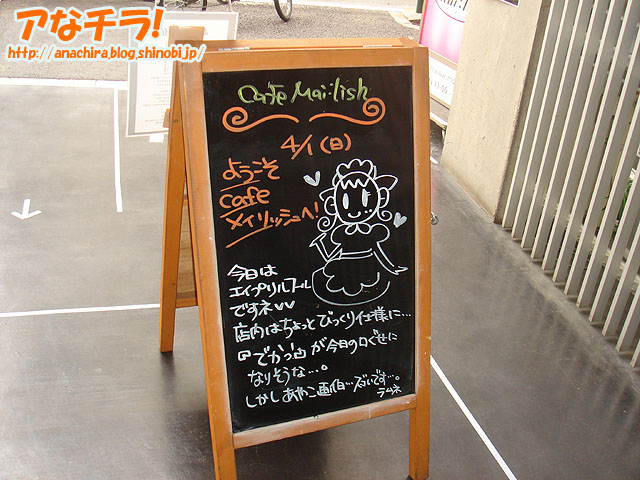 アなチラ!
http://anachira.blog.shinobi.jp/
Cafe Mai:lish
4/1(日)
ようこそ
cafe
メイリッシュへ!
今日は
エイプリルフール
ですネ♥♥
店内はちょっとびっくり仕様に…
が今日の口ぐせに
なりそうな…。
しかしあやこ画伯…
ラムネ